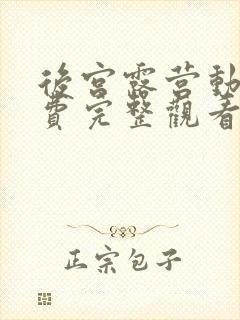 後宮露营動
費完整觀看
正宗包子